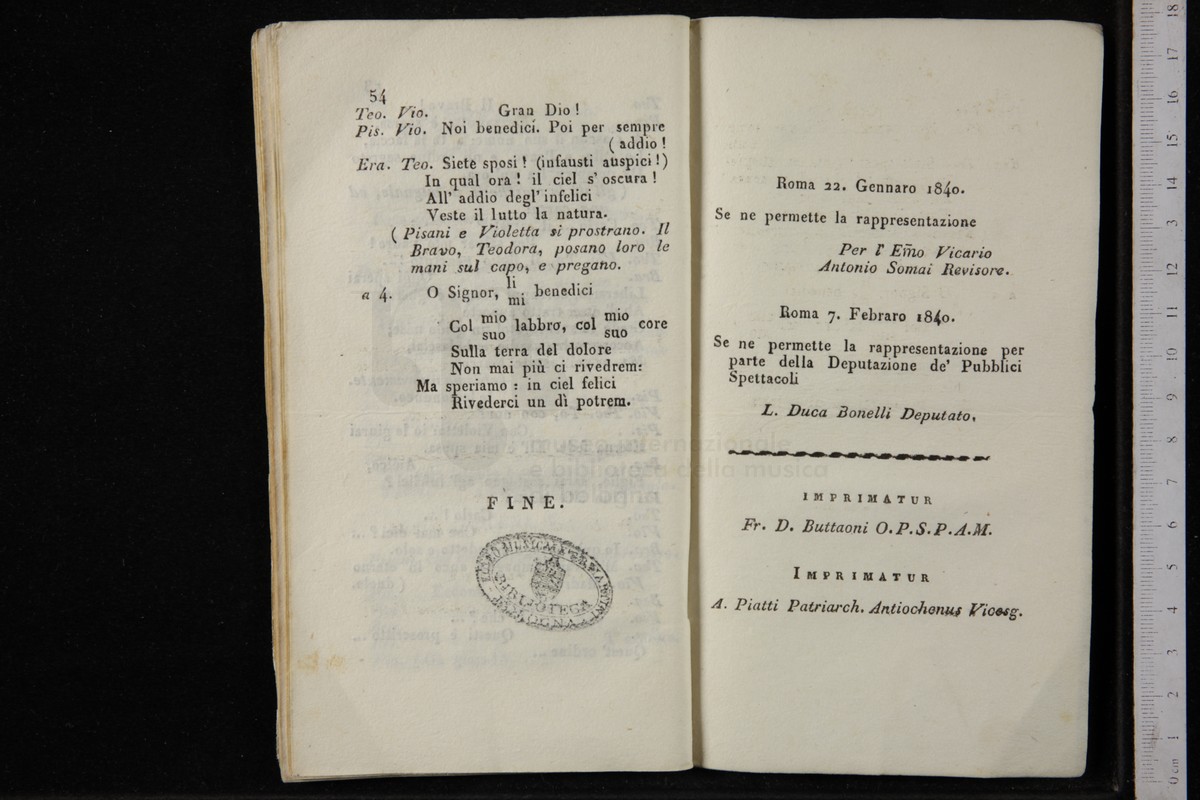 54
Teo. Vio. Gran Dio !
Pis. Vio. Noi benedici. Poi per sempre
( addio !
Era. Teo. Siete sposi ! (infausti auspici !)
In qual ora ! il ciel s' oscura !
All' addio degl' infelici
Veste il lutto la natura.
( Pisani e Violetta si prostrano. Il
Bravo, Teodora, posano loro le
mani sul capo, e pregano.
a 4. O Signor, li mi benedici
Col mio suo labbro, col mio suo core
Sulla terra del dolore
Non mai più ci rivedrem:
Ma speriamo : in ciel felici
Rivederci un dì potrem.
FINE.
LICEO MUSICALE
BIBLIOTECA
BOLOGNA
Roma 22. Gennaro 1840.
Se ne permette la rappresentazione
Per l' Em̃o Vicario
Antonio Somai Revisore.
Roma 7. Febraro 1840.
Se ne permette la rappresentazione per
parte della Deputazione de' Pubblici
Spettacoli
L. Duca Bonelli Deputato,
IMPRIMATUR
Fr. D. Buttaoni O.P.S.P.A.M.
IMPRIMATUR
A. Piatti Patriarch. Antiochenus Vicesg.
museo internazionale
e biblioteca della musica
di bologna
0 cm 1 2 3 4 5 6 7 8 9 10 11 12 13 14 15 16 17 18